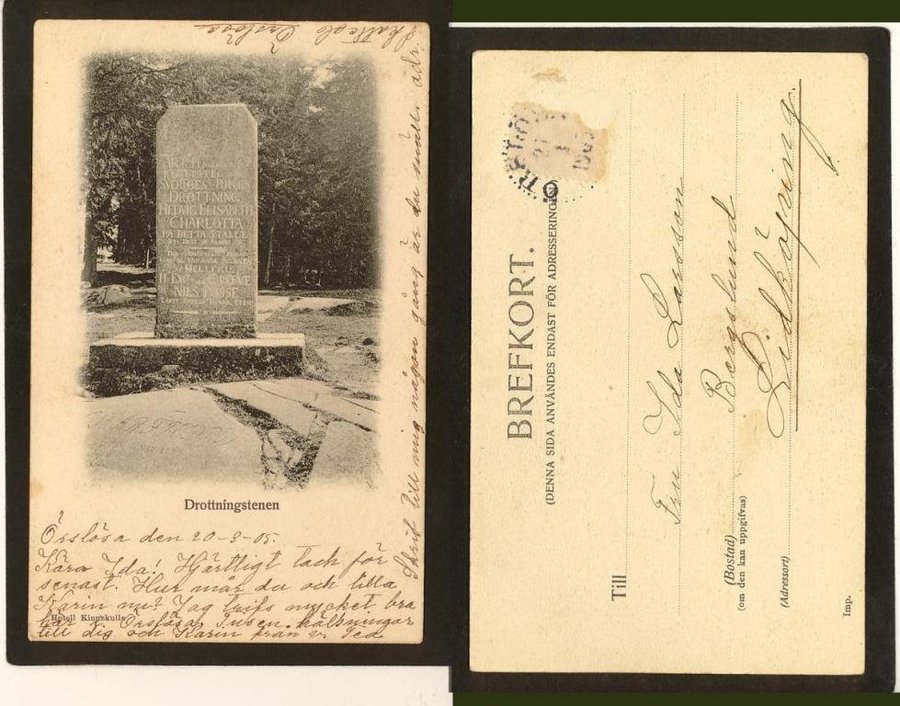 Drottningstenen
Örslösa den 20-3-05.
Kära Ida! Härtligt tack för
senast. Hur mår du och lilla
Karin nu? Jag trifs mycket bra
här i Örslösa. Tusen hälsningar
till dig och Karin från v. Ida
Hotell Kinnekulle
Skrif till mig någon gång är du snäll. adr.
Örslösa
DROTTNING
HEDVIG ELISABETH
CHARLOTTA
PÅ DETTA STÄLLE
BREFKORT.
(DENNA SIDA ANVÄNDES ENDAST FÖR ADRESSERINGEN)
Till Fru Ida Larsson
Berglund
(Bostad)
(om den kan uppgifvas)
Lidköping.
(Adressort)
Imp.